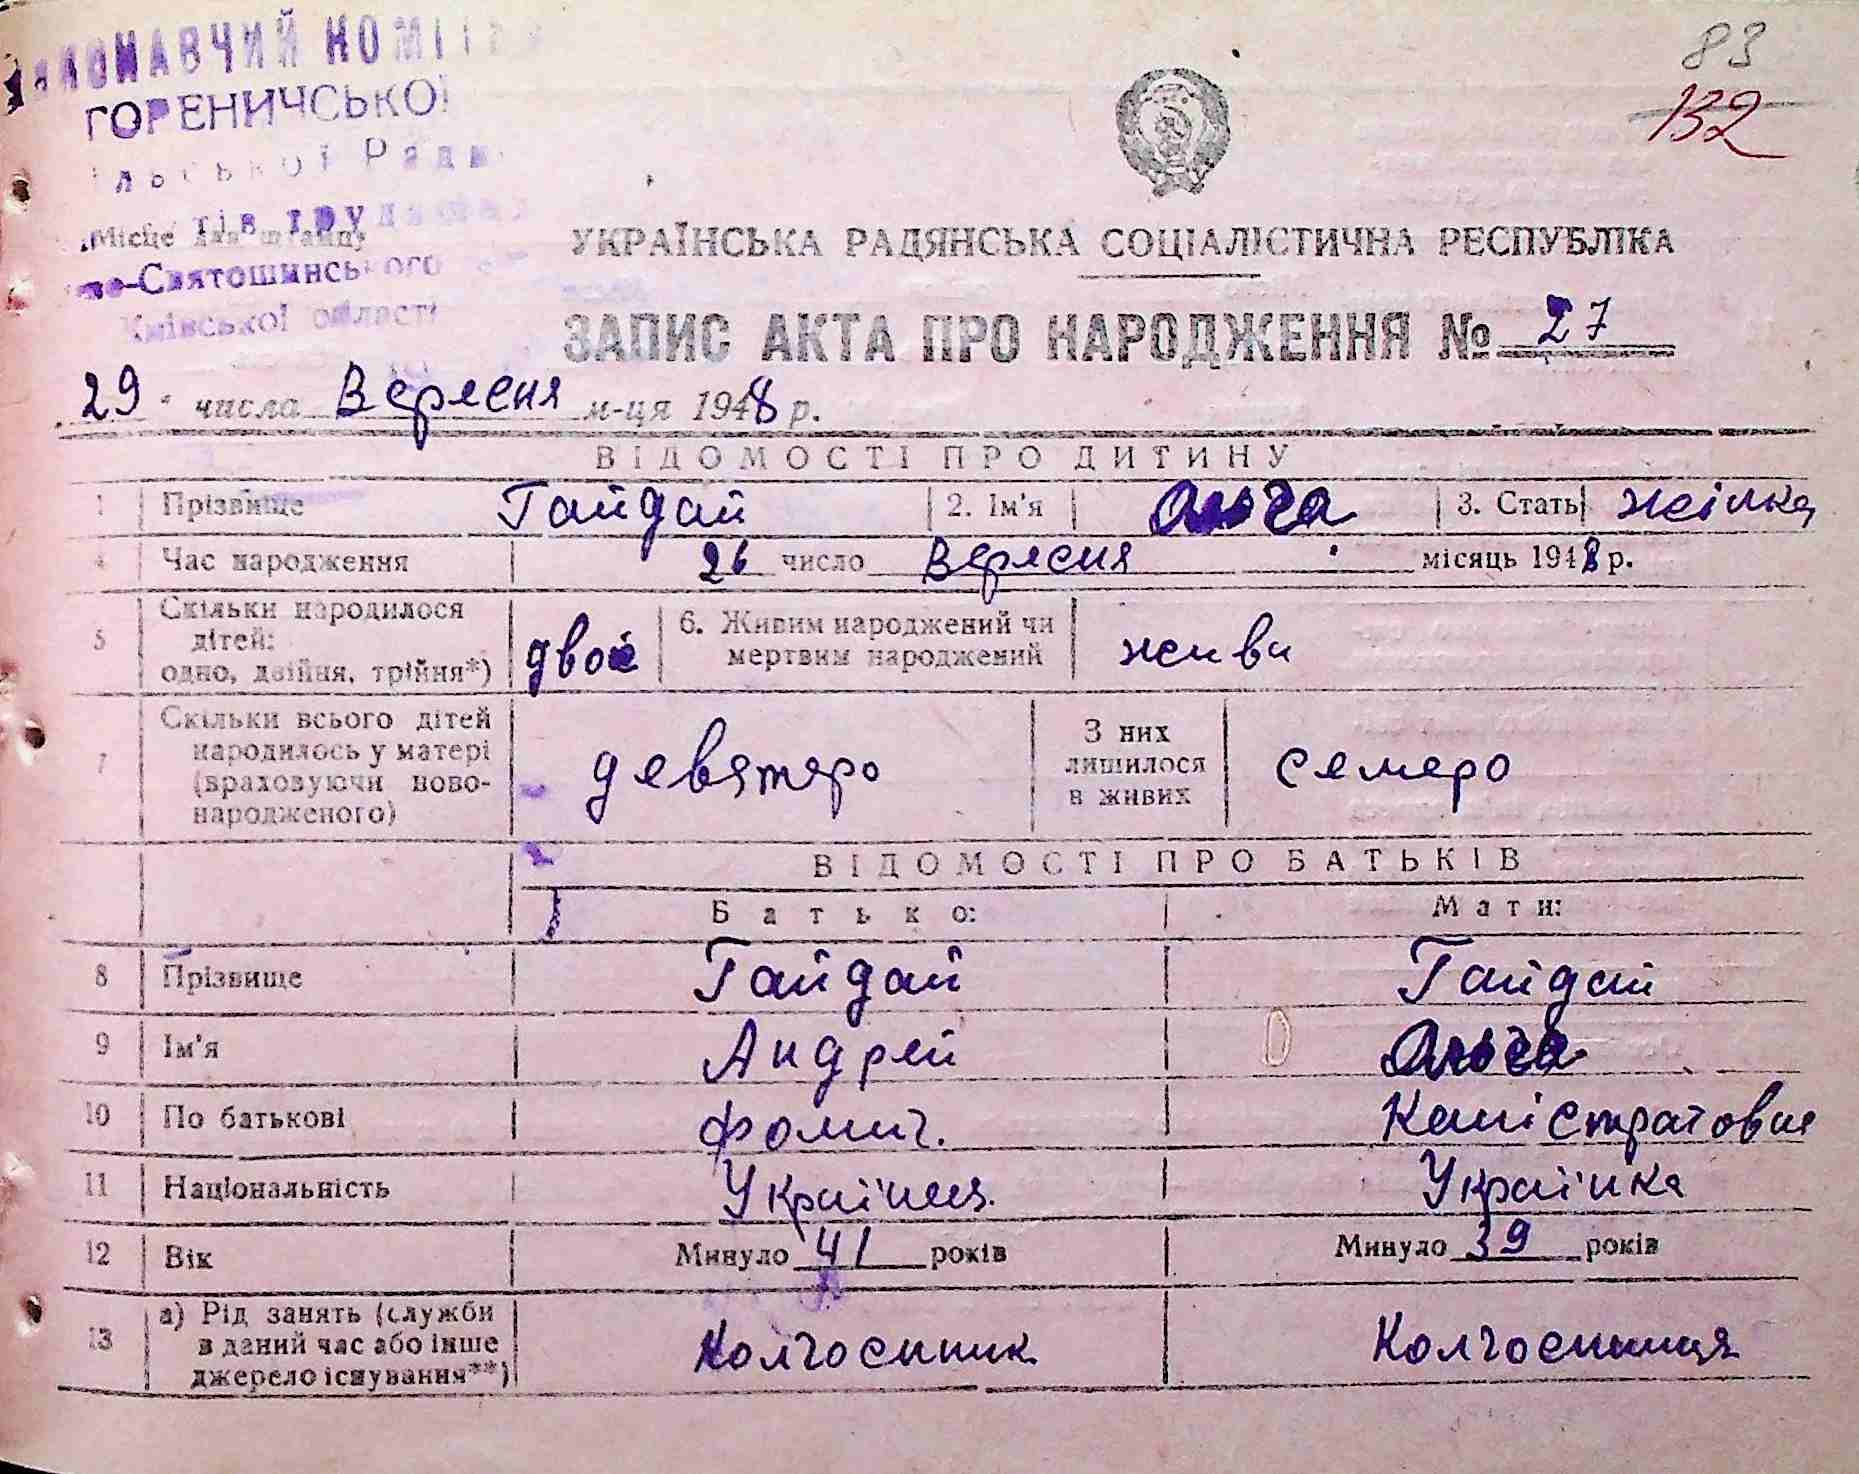 83
132
ГОРЕНИЧСЬКОЇ
Місце для штампу
Київської області
УКРАЇНСЬКА РАДЯНСЬКА СОЦІАЛІСТИЧНА РЕСПУБЛІКА
ЗАПИС АКТА ПРО НАРОДЖЕННЯ № 27
29 числа Вересня м-ця 1948 р.
ВІДОМОСТІ ПРО ДИТИНУ
1 Прізвище Гайдай 2. Ім'я Ольга 3. Стать жінка
4 Час народження 26 число Вересня місяць 1948 р.
5 Скільки народилося
дітей:
одно, двійня, трійня*) двоє 6. Живим народжений чи
мертвим народжений живи
7 Скільки всього дітей
народилось у матері
(враховуючи ново-
народженого) девятеро З них
лишилося
в живих семеро
ВІДОМОСТІ ПРО БАТЬКІВ
Батько: Мати:
8 Прізвище Гайдай Гайдай
9 Ім'я Андрей Ольга
10 По батькові Фомич. Калістратовна
11 Національність Українец. Українка
12 Вік Минуло 41 років Минуло 39 років
13 а) Рід занять (служби
в даний час або інше
джерело існування**) Колгоспник Колгоспниця